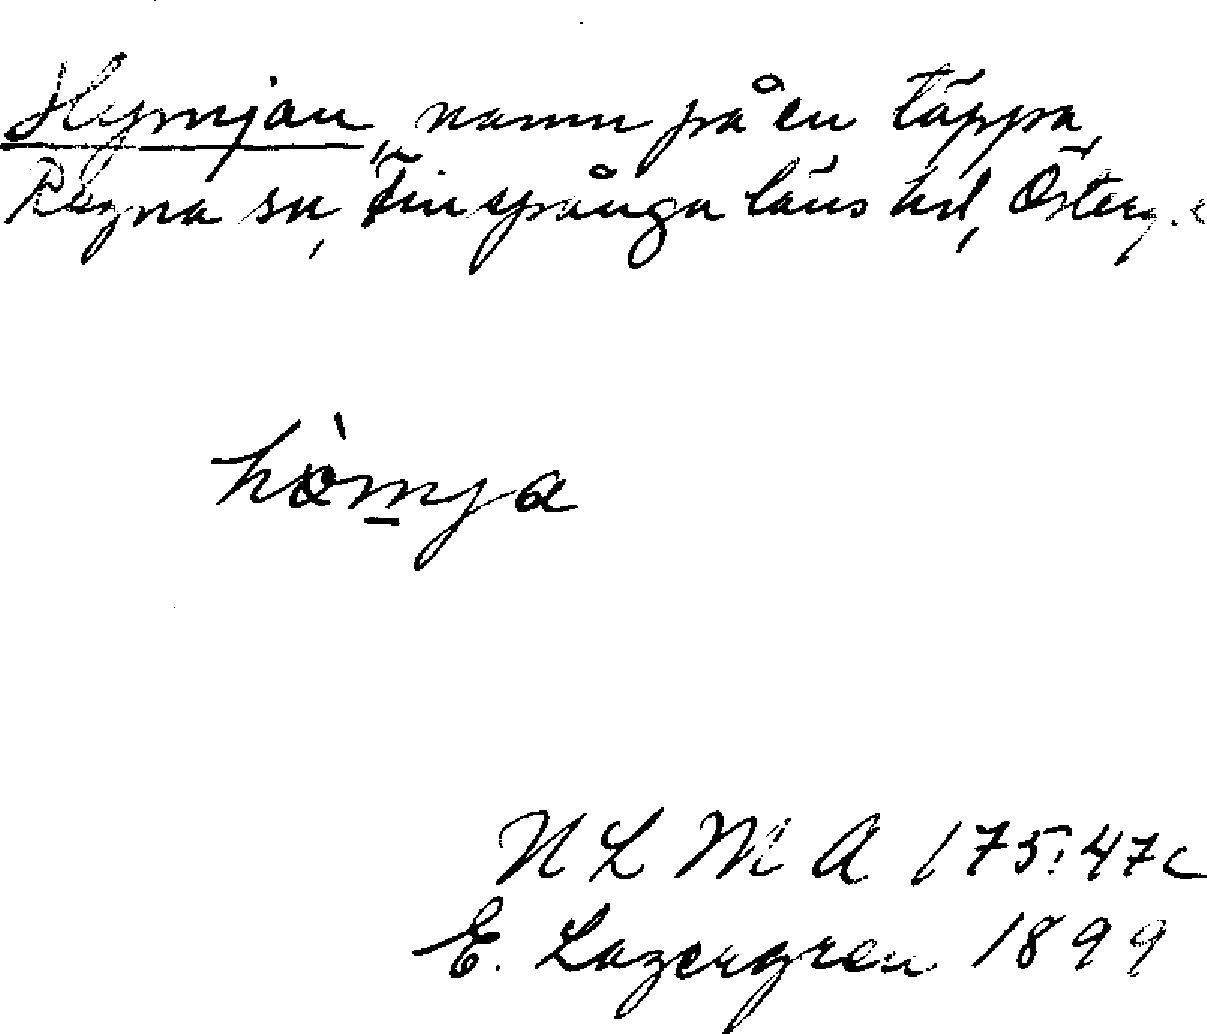 Hymjan, namn på en täppa,
Regna sn, Finspånga läns hd, Österg.
hömja
N L M A 175:47c
E. Lagergren 1899